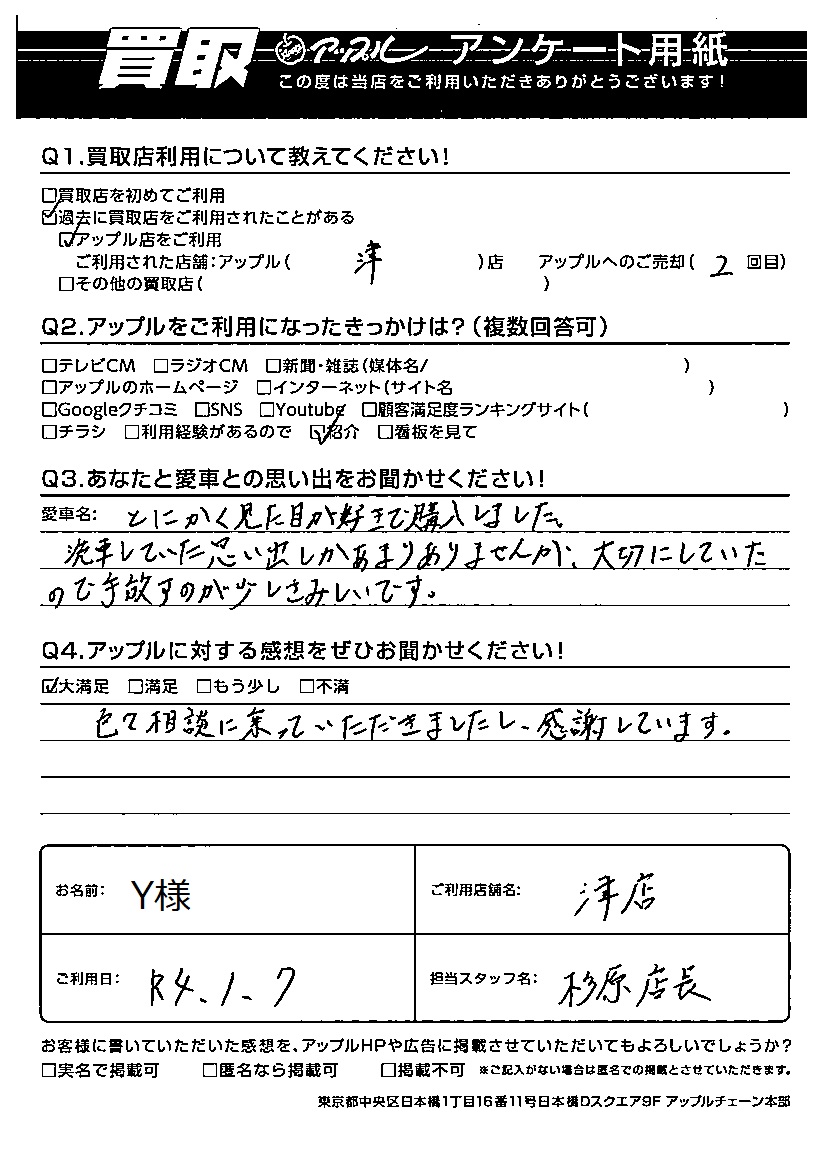 買取 アップル アンケート用紙
この度は当店をご利用いただきありがとうございます!
Q1.買取店利用について教えてください!
□買取店を初めてご利用
☑過去に買取店をご利用されたことがある
☑アップル店をご利用
ご利用された店舗:アップル( 津 )店 アップルへのご売却( 2 回目)
□その他の買取店( )
Q2.アップルをご利用になったきっかけは?(複数回答可)
□テレビCM □ラジオCM □新聞・雑誌(媒体名/ )
□アップルのホームページ □インターネット(サイト名 )
□Googleクチコミ □SNS □Youtube □顧客満足度ランキングサイト( )
□チラシ □利用経験があるので ☑紹介 □看板を見て
Q3.あなたと愛車との思い出をお聞かせください!
愛車名: とにかく見た目が好きで購入しました。
洗車していた思い出しかあまりありませんが、大切にしていた
ので手放すのが少しさみしいです。
Q4.アップルに対する感想をぜひお聞かせください!
☑大満足 □満足 □もう少し □不満
色々相談に乗っていただきましたし、感謝しています。
お名前: Y様 ご利用店舗名: 津店
ご利用日: R4.1.7 担当スタッフ名: 杉原店長
お客様に書いていただいた感想を、アップルHPや広告に掲載させていただいてもよろしいでしょうか?
□実名で掲載可 □匿名なら掲載可 □掲載不可 ※ご記入がない場合は匿名での掲載とさせていただきます。
東京都中央区日本橋1丁目16番11号日本橋Dスクエア9F アップルチェーン本部